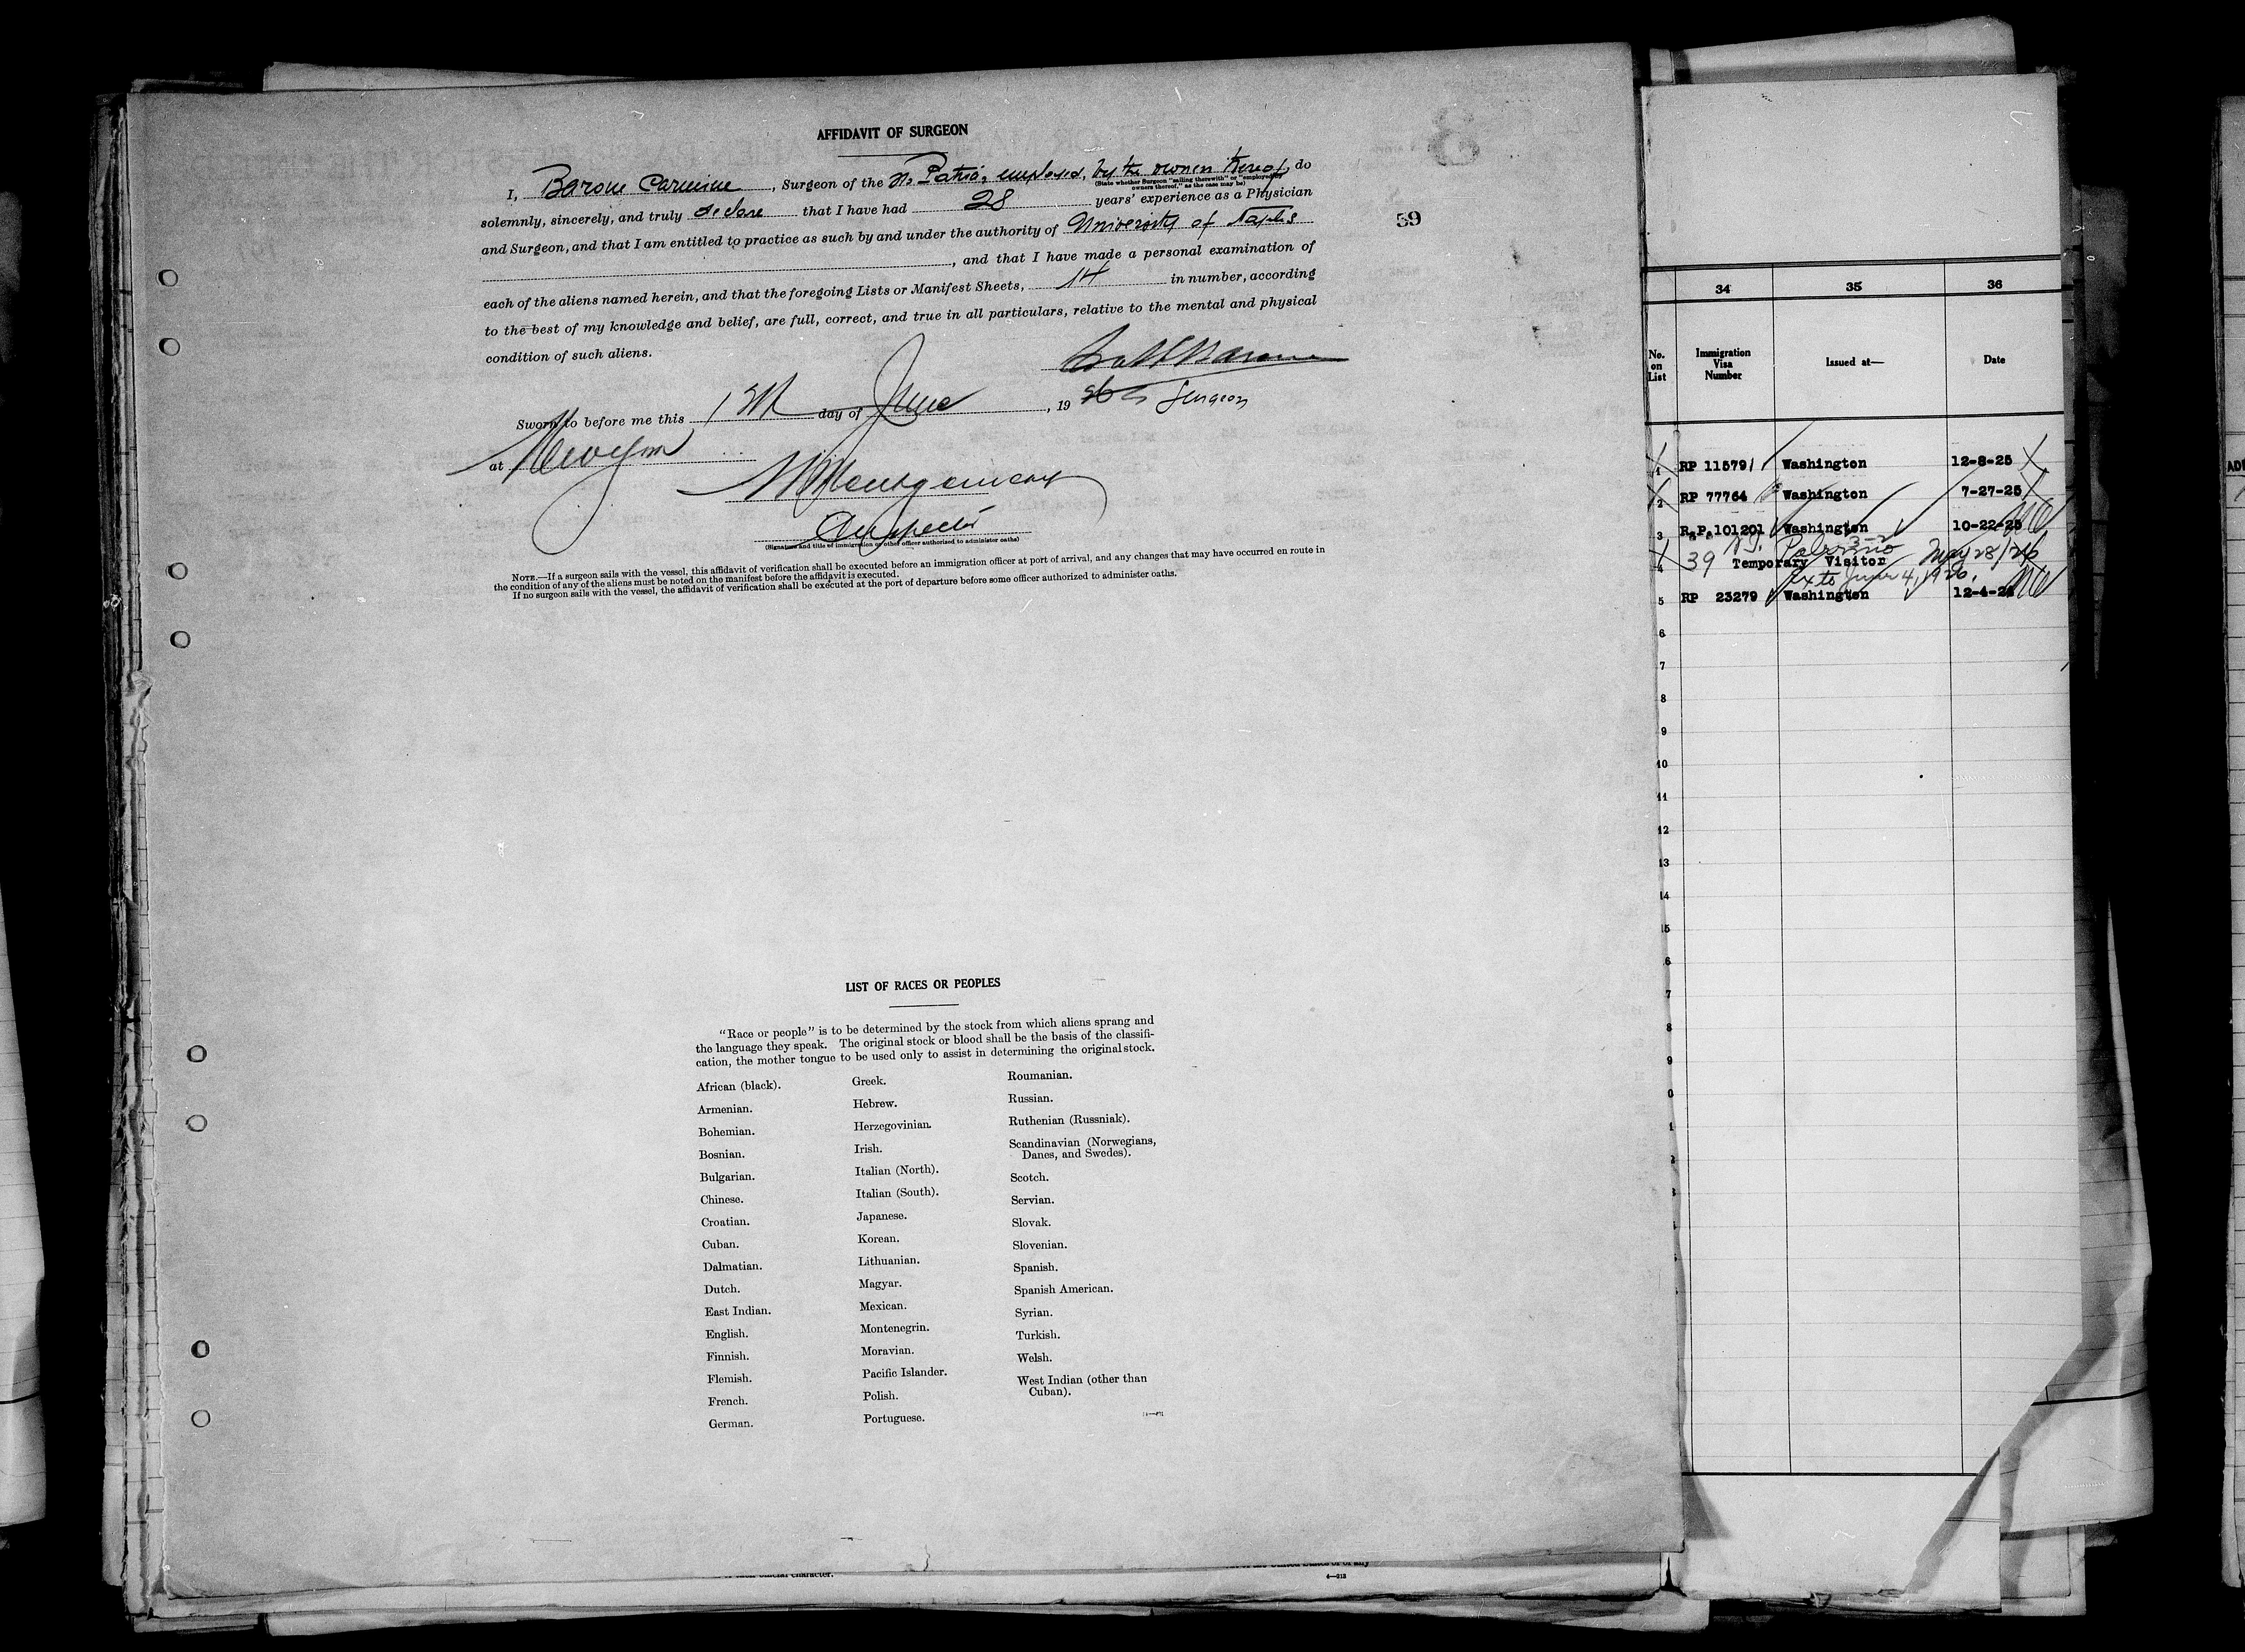 8
AFFIDAVIT OF SURGEON
I, Barone Carmine, Surgeon of the ss Patria, employed, by the owner thereof, do
(State whether Surgeon "sailing therewith" or "employed by
owners thereof," as the case may be)
solemnly, sincerely, and truly declare that I have had 28 years' experience as a Physician
and Surgeon, and that I am entitled to practice as such by and under the authority of University of Naples
, and that I have made a personal examination of
each of the aliens named herein, and that the foregoing Lists or Manifest Sheets, 14 in number, according
to the best of my knowledge and belief, are full, correct, and true in all particulars, relative to the mental and physical
condition of such aliens.
59
Surgeon
Sworn to before me this 1 day of June, 19 26
at
Inspector
(Signature and title of immigration or other officer authorized to administer oaths)
NOTE.—If a surgeon sails with the vessel, this affidavit of verification shall be executed before an immigration officer at port of arrival, and any changes that may have occurred en route in
the condition of any of the aliens must be noted on the manifest before the affidavit is executed.
If no surgeon sails with the vessel, the affidavit of verification shall be executed at the port of departure before some officer authorized to administer oaths.
LIST OF RACES OR PEOPLES
"Race or people" is to be determined by the stock from which aliens sprang and
the language they speak. The original stock or blood shall be the basis of the classifi-
cation, the mother tongue to be used only to assist in determining the original stock.
African (black).
Armenian.
Bohemian.
Bosnian.
Bulgarian.
Chinese.
Croatian.
Cuban.
Dalmatian.
Dutch.
East Indian.
English.
Finnish.
Flemish.
French.
German.
Greek.
Hebrew.
Herzegovinian.
Irish.
Italian (North).
Italian (South).
Japanese.
Korean.
Lithuanian.
Magyar.
Mexican.
Montenegrin.
Moravian.
Pacific Islander.
Polish.
Portuguese.
Roumanian.
Russian.
Ruthenian (Russniak).
Scandinavian (Norwegians,
Danes, and Swedes).
Scotch.
Servian.
Slovak.
Slovenian.
Spanish.
Spanish American.
Syrian.
Turkish.
Welsh.
West Indian (other than
Cuban).
official character.
4—213
34 35 36
No.
on
List
Immigration
Visa
Number
Issued at—
Date
1 RP 11579 Washington 12-8-25
2 RP 77764 Washington 7-27-25
3 R.P. 101201 Washington 10-22-25
39 Palermo May 28/26
4 Temporary Visitor
Ex to June 4, 1926.
5 RP 23279 Washington 12-4-24
6
7
8
9
10
11
12
13
14
15
6
7
8
9
0
1
2